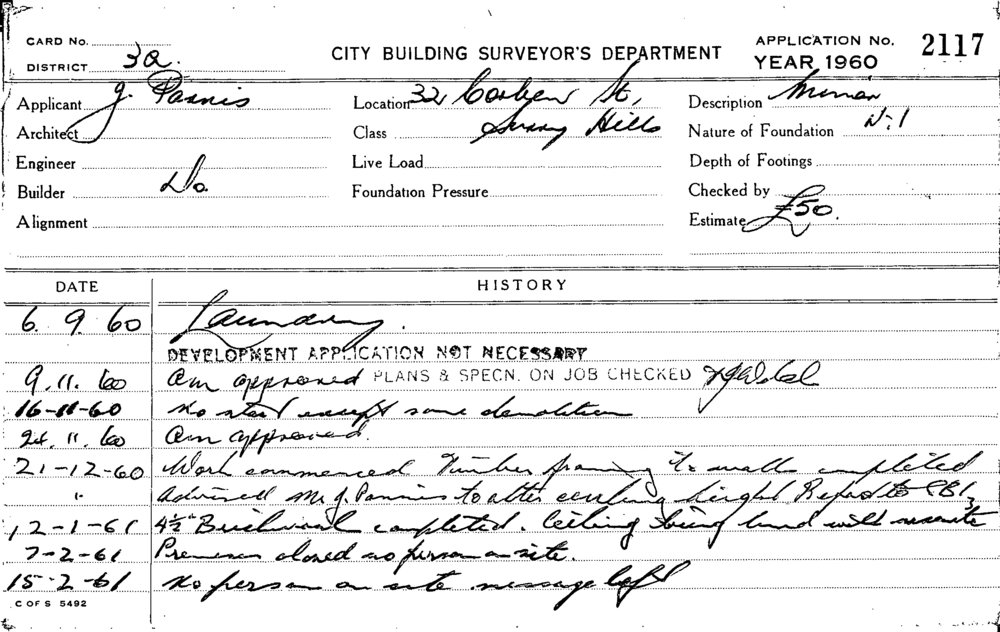 CARD No.
DISTRICT 3a.
CITY BUILDING SURVEYOR'S DEPARTMENT
APPLICATION No. 2117
YEAR 1960
Applicant J. Pannis
Architect
Engineer
Builder Do.
Alignment
Location 32 St,
Class Surry Hills
Live Load
Foundation Pressure
Description
Nature of Foundation Nil
Depth of Footings
Checked by
Estimate £50.
DATE HISTORY
6. 9. 60 Laundry.
DEVELOPMENT APPLICATION NOT NECESSARY
9. 11. 60 Am approved PLANS & SPECN. ON JOB CHECKED
16-11-60 No start except some demolition
24. 11. 60 Am approved.
21-12-60 Work commenced Timber framing to walls completed
" Advised Mr J. Pannis to alter ceiling height to
12-1-61 4½" completed. Ceiling being lined with
7-2-61 Premises closed no person on site.
15-2-61 No person on site message left
C OF S 5492